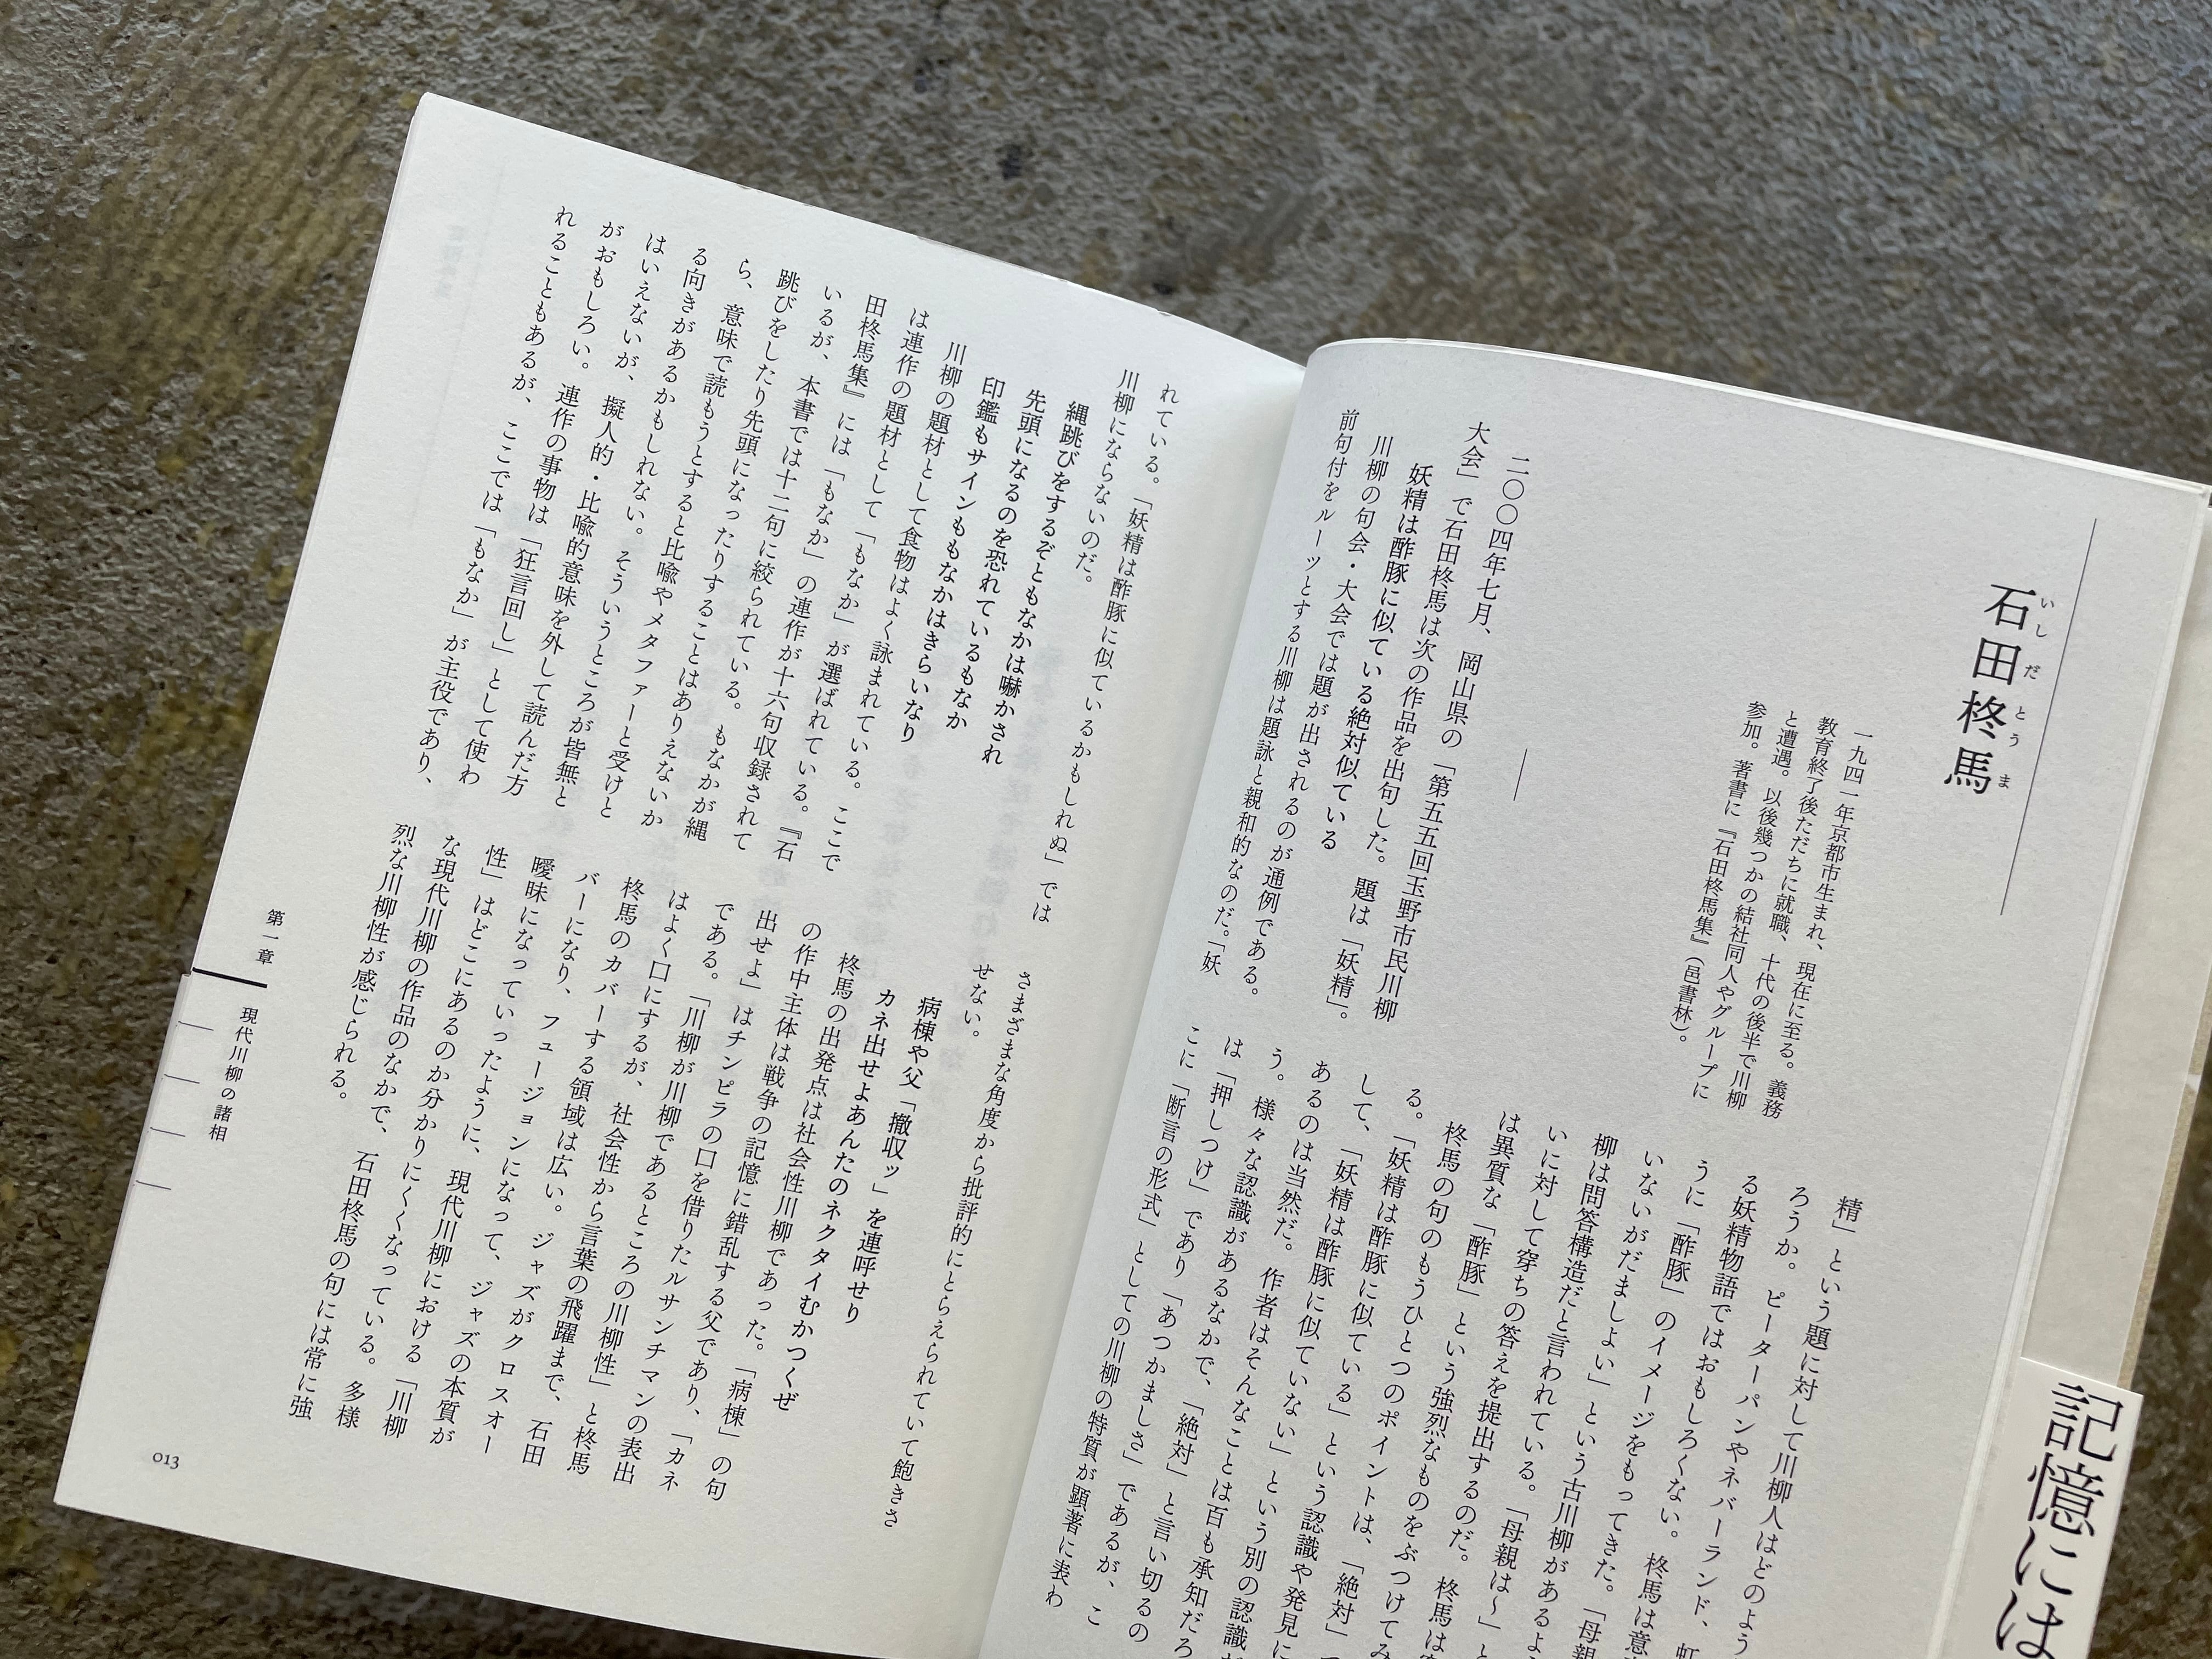 石田柊馬
いしだとうま
一九四一年京都市生まれ、現在に至る。義務
教育終了後ただちに就職、十代の後半で川柳
と遭遇。以後幾つかの結社同人やグループに
参加。著書に『石田柊馬集』(邑書林)。
二〇〇四年七月、岡山県の「第五五回玉野市民川柳
大会」で石田柊馬は次の作品を出句した。題は「妖精」。
妖精は酢豚に似ている絶対似ている
川柳の句会・大会では題が出されるのが通例である。
前句付をルーツとする川柳は題詠と親和的なのだ。「妖
精」という題に対して川柳人はどのよう
ろうか。ピーターパンやネバーランド、虹
る妖精物語ではおもしろくない。柊馬は意
うに「酢豚」のイメージをもってきた。「母親
いないがだましよい」という古川柳があるよ
柳は問答構造だと言われている。「母親は〜」と
いに対して穿ちの答えを提出するのだ。柊馬は
は異質な「酢豚」という強烈なものをぶつけてみ
柊馬の句のもうひとつのポイントは、「絶対」
る。「妖精は酢豚に似ている」という認識や発見に
して、「妖精は酢豚に似ていない」という別の認識
あるのは当然だ。作者はそんなことは百も承知だろ
う。様々な認識があるなかで、「絶対」と言い切るの
は「押しつけ」であり「あつかましさ」であるが、こ
こに「断言の形式」としての川柳の特質が顕著に表わ
れている。「妖精は酢豚に似ているかもしれぬ」では
川柳にならないのだ。
縄跳びをするぞともなかは嚇かされ
先頭になるのを恐れているもなか
印鑑もサインももなかはきらいなり
川柳の題材として食物はよく詠まれている。ここで
は連作の題材として「もなか」が選ばれている。『石
田柊馬集』には「もなか」の連作が十六句収録されて
いるが、本書では十二句に絞られている。もなかが縄
跳びをしたり先頭になったりすることはありえないか
ら、意味で読もうとすると比喩やメタファーと受けと
る向きがあるかもしれない。そういうところが皆無と
はいえないが、擬人的・比喩的意味を外して読んだ方
がおもしろい。連作の事物は「狂言回し」として使わ
れることもあるが、ここでは「もなか」が主役であり、
さまざまな角度から批評的にとらえられていて飽きさ
せない。
病棟や父「撤収ッ」を連呼せり
カネ出せよあんたのネクタイむかつくぜ
柊馬の出発点は社会性川柳であった。「病棟」の句
の作中主体は戦争の記憶に錯乱する父であり、「カネ
出せよ」はチンピラの口を借りたルサンチマンの表出
である。「川柳が川柳であるところの川柳性」と柊馬
はよく口にするが、社会性から言葉の飛躍まで、石田
柊馬のカバーする領域は広い。ジャズがクロスオー
バーになり、フュージョンになって、ジャズの本質が
曖昧になっていったように、現代川柳における「川柳
性」はどこにあるのか分かりにくくなっている。多様
な現代川柳の作品のなかで、石田柊馬の句には常に強
烈な川柳性が感じられる。
第一章
現代川柳の諸相
013
記憶には